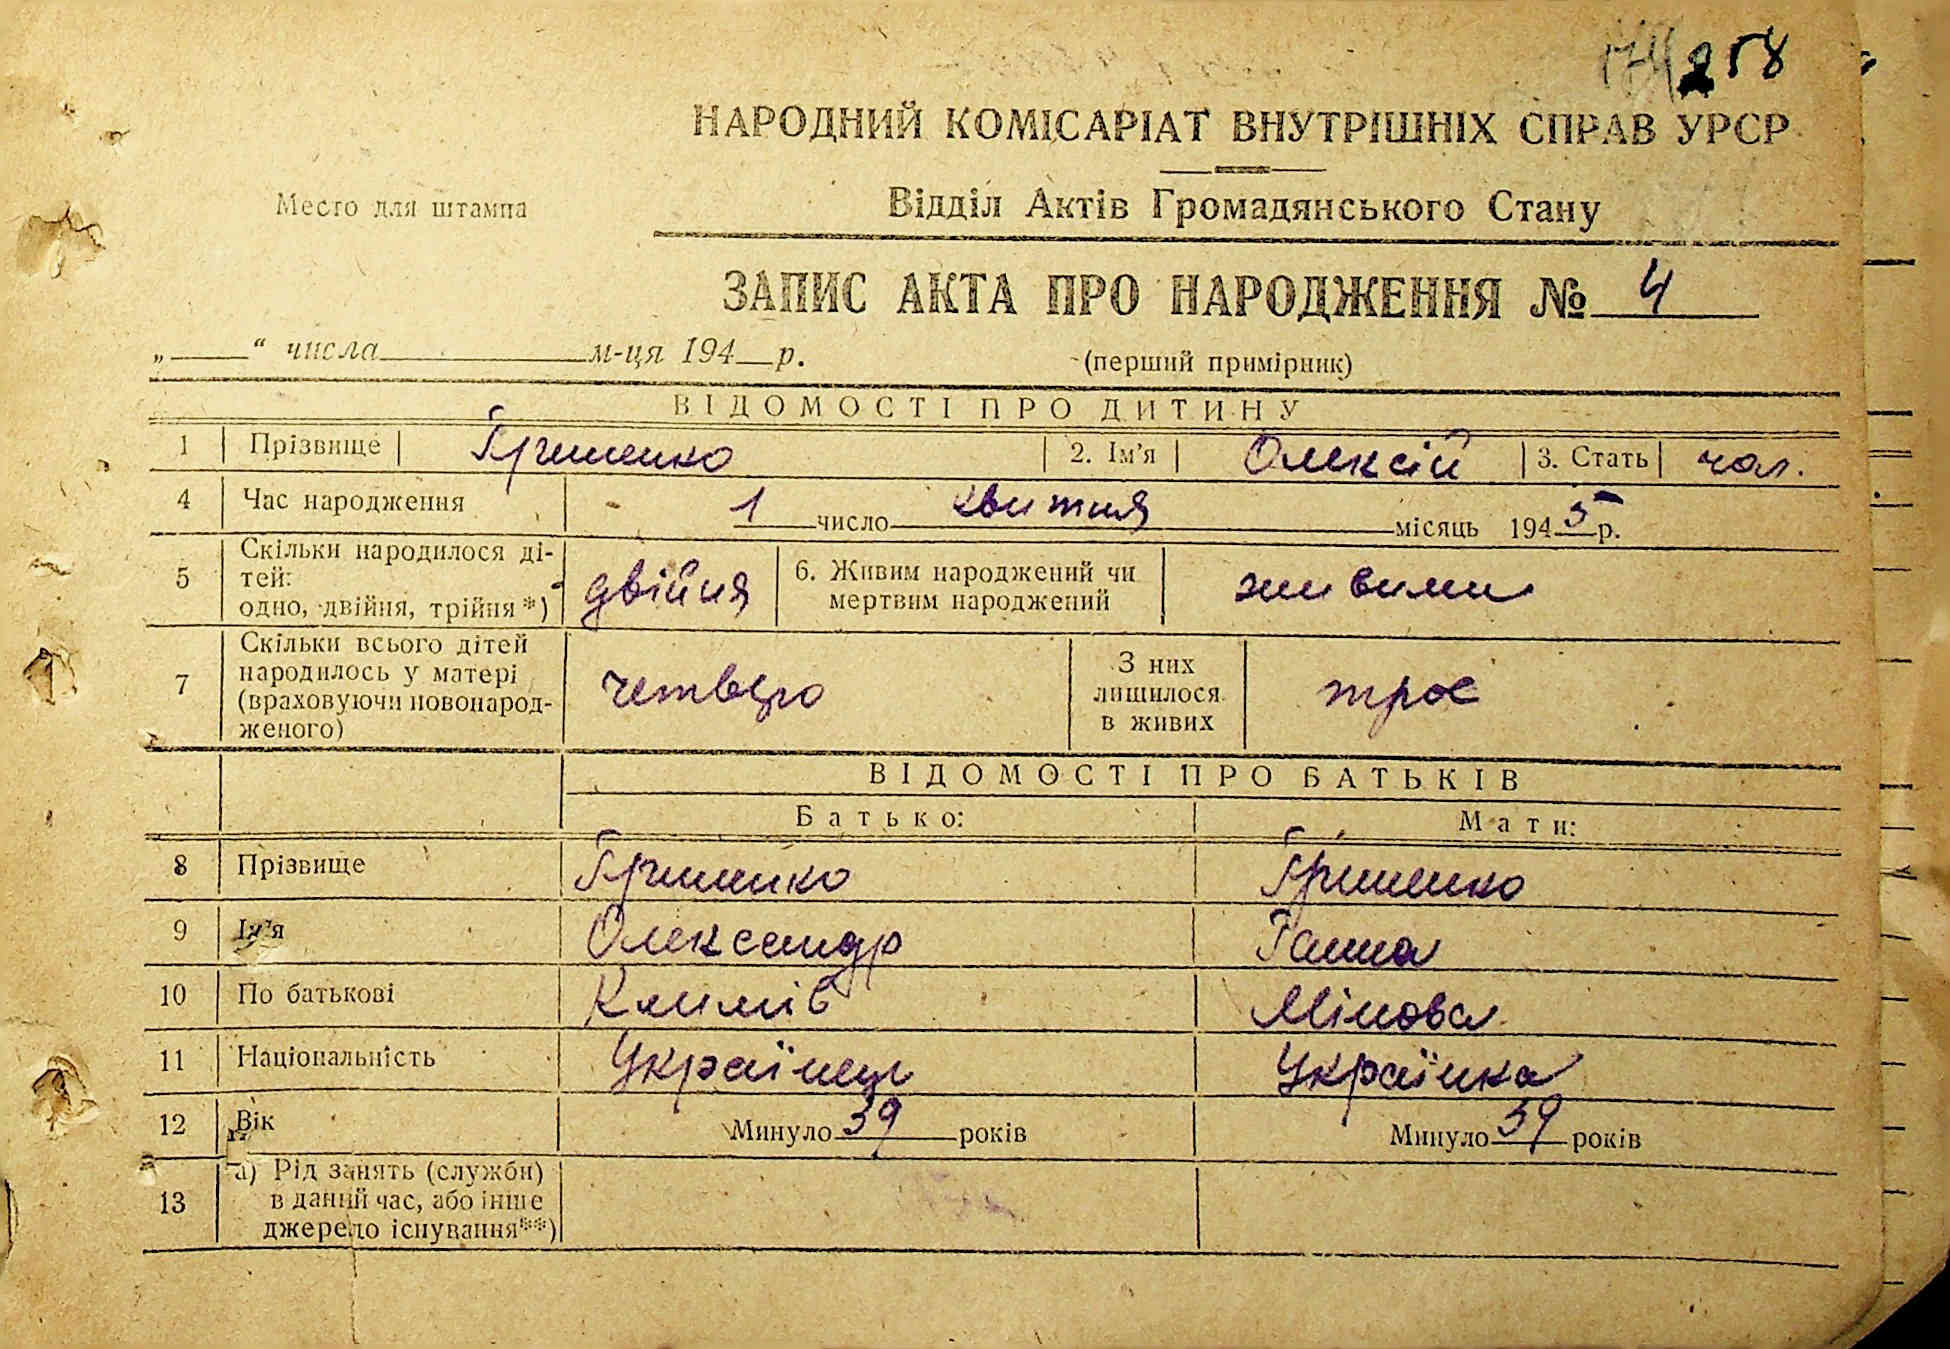 258
НАРОДНИЙ КОМІСАРІАТ ВНУТРІШНІХ СПРАВ УРСР
Место для штампа
Відділ Актів Громадянського Стану
ЗАПИС АКТА ПРО НАРОДЖЕННЯ № 4
„____“ числа____________м-ця 194__р.
(перший примірник)
ВІДОМОСТІ ПРО ДИТИНУ
1 Прізвище Гришенко 2. Ім'я Олексій 3. Стать чол.
4 Час народження 1 число квитня місяць 1945 р.
5 Скільки народилося ді-
тей:
одно, двійня, трійня *)
двійня
6. Живим народжений чи
мертвим народжений
живими
7 Скільки всього дітей
народилось у матері
(враховуючи новонарод-
женого)
четверо
З них
лишилося
в живих
троє
ВІДОМОСТІ ПРО БАТЬКІВ
Батько: Мати:
8 Прізвище Гришенко Гришенко
9 Ім'я Олександр Ганна
10 По батькові Климів Мінова
11 Національність Українець Українка
12 Вік Минуло 39 років Минуло 39 років
13 а) Рід занять (служби)
в даний час, або інше
джерело існування**)